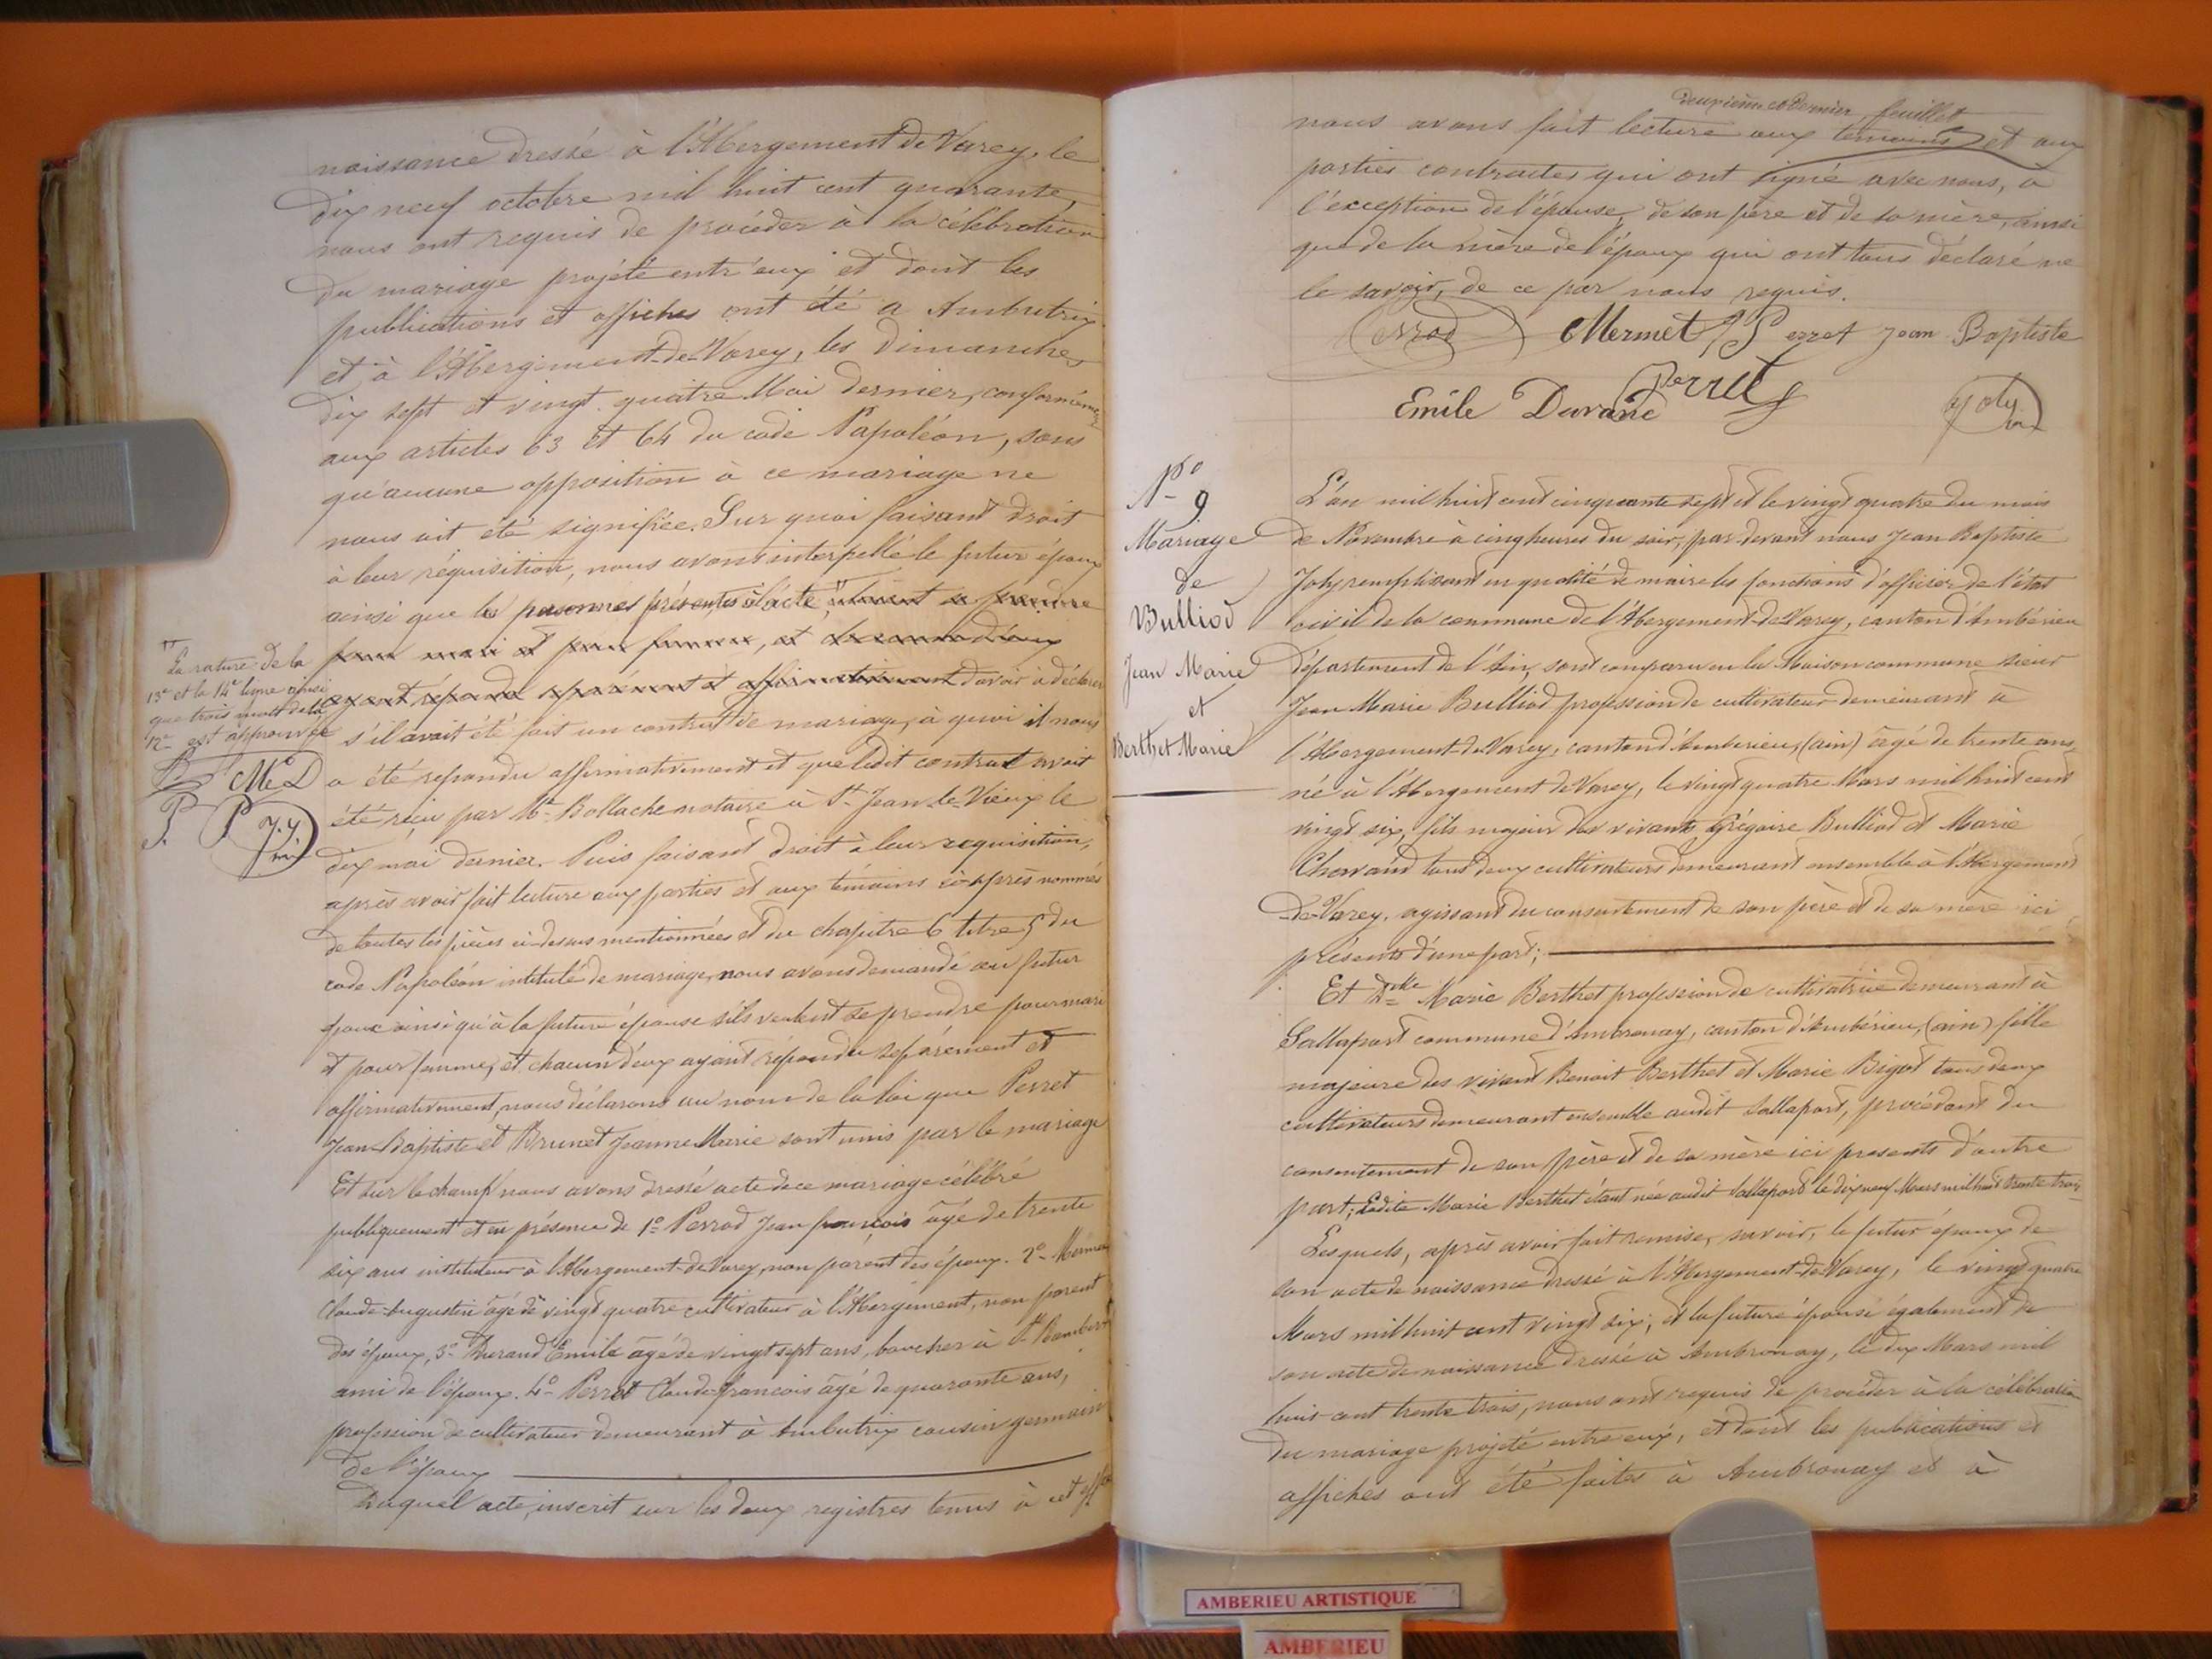 naissance dressé à l'Abergement de Varey, le
dix neuf octobre mil huit cent quarante,
nous ont requis de procéder à la célébration
du mariage projété entr'eux et dont les
publications et affiches ont été a Ambutrix
et à l'Abergement-de-Varey, les Dimanches
dix sept et vingt quatre Mai dernier, conformément
aux articles 63 et 64 du code Napoléon, sans
qu'aucune opposition à ce mariage ne
nous ait été signifiée. Sur quoi faisant droit
à leur réquisition, nous avons interpellé le futur époux
ainsi que les personnes présentes à l'acte, " veulent se prendre
pour mari et pour femme, et chacun d'eux
ayant répondu séparément et affirmativement d'avoir à déclarer
s'il avait été fait un contrat de mariage, à quoi il nous
a été répondu affirmativement et que ledit contrat avait
été reçu par Me Bollache notaire à St Jean-le-Vieux le
dix mai dernier. Puis faisant droit à leur requisition,
après avoir fait lecture aux parties et aux témoins ci-après nommés
de toutes les pièces ci-dessus mentionnées et du chapitre 6 titre 5 du
code Napoléon intitulé de mariage, nous avons demandé au futur
époux ainsi qu'à la future épouse s'ils veulent se prendre pour mari
et pour femme, et chacun d'eux ayant répondu séparément et
affirmativement, nous déclarons au nom de la loi que Perret
Jean-Baptiste et Brunet Jeanne Marie sont unis par le mariage
Et sur le champ nous avons dressé acte de ce mariage célébré
publiquement et en présence de 1º Perrod Jean françois âgé de trente
six ans instituteur à l'Abergement-de-Varey, non parent des époux. 2º Mermet
Claude-Augustin âgé de vingt quatre cultivateur à l'Abergement, non parent
des époux, 3º Durand Emile âgé de vingt sept ans, boucher à St Rambert
ami de l'époux. 4º Perret Claude-françois âgé de quarante ans,
profession de cultivateur demeurant à Ambutrix cousin germain
de l'époux
Duquel acte, inscrit sur les deux registres tenus à cet effet
" La rature de la
13e et la 14e ligne ainsi
que trois mots de la
12e est approuvée
M D
P. P J.J.
deuxième et dernier feuillet
nous avons fait lecture aux témoins et aux
parties contractes qui ont signé avec nous, à
l'exception de l'épouse, de son père et de sa mère, ainsi
que de la mère de l'époux qui ont tous déclaré ne
le savoir, de ce par nous requis.
Perrod Mermet Perret Jean Baptiste
Perret
Emile Durand Joly
Nº 9
Mariage
de
Bulliod
Jean Marie
et
Berthet Marie
L'an mil huit cent cinquante sept et le vingt quatre du mois
de Novembre à cinq heures du soir, par-devant nous Jean Baptiste
Joly remplissant en qualité de maire les fonctions d'officier de l'état
civil de la commune de l'Abergement-de-Varey, canton d'Ambérieu
département de l'Ain, sont comparu en la Maison commune sieur
Jean Marie Bulliod profession de cultivateur demeurant à
l'Abergement-de-Varey, canton d'Amberieu, (ain) âgé de trente ans,
né à l'Abergement de Varey, le vingt quatre Mars mil huit cent
vingt six, fils majeur des vivants Grégoire Bulliod et Marie
Chavand tous deux cultivateurs demeurant ensemble à l'Abergement
-de-Varey, agissant du consentement de son père et de sa mère ici
présents d'une part;
Et Delle Marie Berthet profession de cultivatrice demeurant à
Sallaport commune d'Ambronay, canton d'Ambérieu, (ain) fille
majeure des vivant Benoit Berthet et Marie Bigot tous deux
cultivateurs demeurant ensemble audit Sallaport, procédant du
consentement de son père et de sa mère ici presents d'autre
part; Ladite Marie Berthet étant née audit Sallaport le dix neuf Mars mil huit trente trois
Lesquels, après avoir fait remise, savoir, le futur époux de
son acte de naissance dressé à l'Abergement-de-Varey, le vingt quatre
Mars mil huit cent vingt six; et la future épouse également de
son acte de naissance dressé à Ambronay, le dix Mars mil
huit-cent trente trois, nous ont requis de procéder à la célébration
du mariage projeté entre eux, et dont les publications et
affiches ont été faites à Ambronay et à
AMBERIEU ARTISTIQUE
AMBERIEU